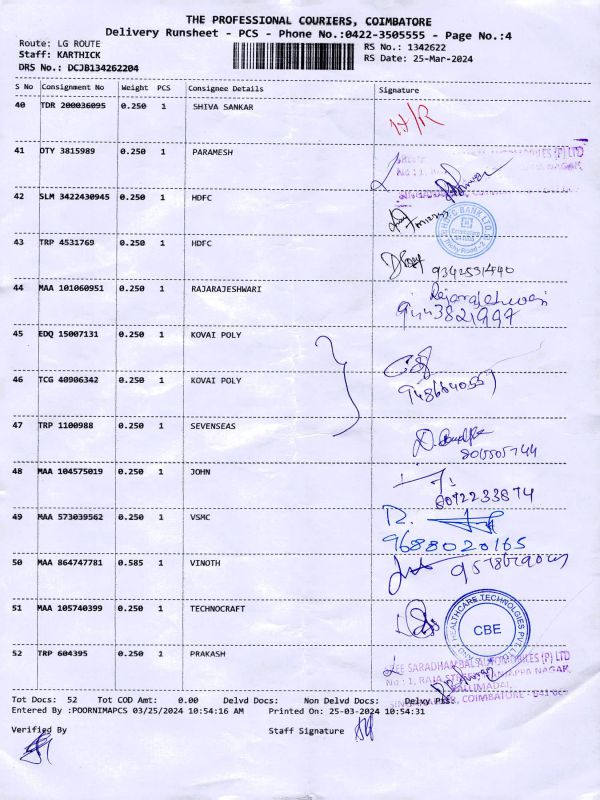 THE PROFESSIONAL COURIERS, COIMBATORE
Delivery Runsheet - PCS - Phone No.:0422-3505555 - Page No.:4
Route: LG ROUTE
Staff: KARTHICK
DRS No.: DCJB134262204
RS No.: 1342622
RS Date: 25-Mar-2024
S No Consignment No Weight PCS Consignee Details Signature
40 TDR 200036095 0.250 1 SHIVA SANKAR
41 DTY 3815989 0.250 1 PARAMESH
42 SLM 3422430945 0.250 1 HDFC
HDFC BANK LTD
43 TRP 4531769 0.250 1 HDFC
44 MAA 101060951 0.250 1 RAJARAJESHWARI Rajarajeshwari
9443821997
45 EDQ 15007131 0.250 1 KOVAI POLY
46 TCG 40906342 0.250 1 KOVAI POLY
47 TRP 1100988 0.250 1 SEVENSEAS
48 MAA 104575019 0.250 1 JOHN
49 MAA 573039562 0.250 1 VSMC
9688020165
50 MAA 864747781 0.585 1 VINOTH
51 MAA 105740399 0.250 1 TECHNOCRAFT
HEALTHCARE TECHNOLOGIES PVT LTD
CBE
52 TRP 604395 0.250 1 PRAKASH
SREE SARADHAMBAL AUTOMOBILES (P) LTD
Tot Docs: 52 Tot COD Amt: 0.00 Delvd Docs: Non Delvd Docs: Delvy PSS:
Entered By :POORNIMAPCS 03/25/2024 10:54:16 AM Printed On: 25-03-2024 10:54:31
Verified By Staff Signature